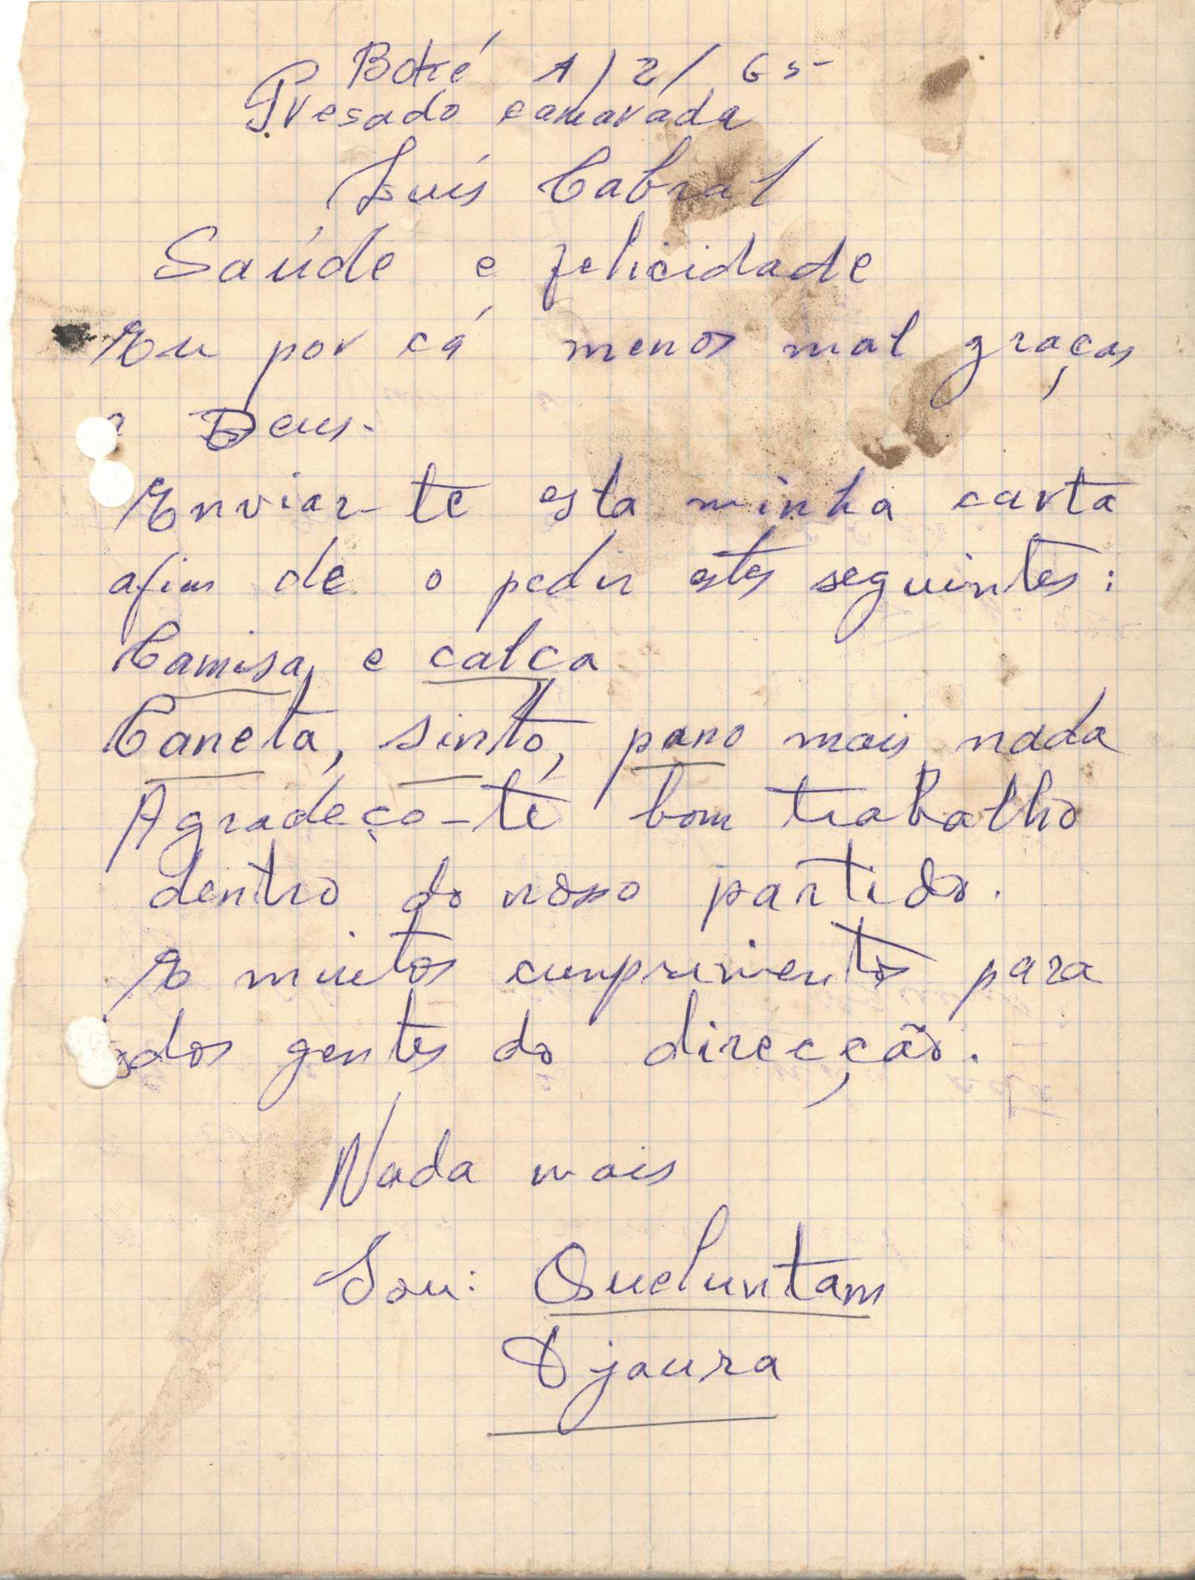 Boké 1/2/65
Presado camarada
Luís Cabral
Saúde e felicidade
Eu por cá menos mal graças
a Deus.
Enviar-te esta minha carta
afim de o pedir estes seguintes:
Camisa, e calca
Caneta, sinto, pano mais nada
Agradeço-te bom trabalho
dentro do nosso partido.
E muitos cumprimentos para
todos gentes do direcção.
Nada mais
Sou: Queluntam
Djaura